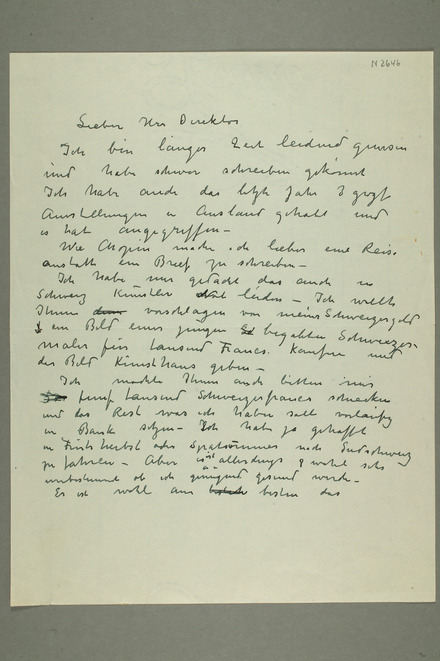 N 2646
Lieber Herr Direktor
Ich bin länger Zeit leidend gewesen
und habe schwer schreiben gekönnt
Ich habe auch das letzte Jahr 3 gross
Ausstellungen in Ausland gehabt und
es hat angegriffen –
Wie Chopin mache ich lieber eine Reise
anstatt ein Brief zu schreiben –
Ich habe mir gedacht das auch in
Schweiz Künstler leiden – Ich wollte
Ihnen vorschlagen von meine Schweizergeld
ein Bild eines jungen begabten Schweizer-
maler für tausend Francs. Kaufen und
das Bild Kunsthaus geben –
Ich möchte Ihnen auch bitten mir
fünf tausend Schweizerfrancs schicken
und das Rest was ich haben soll vorläufig
in Bank setzen – Ich habe ja gehofft
in Früh herbst oder Spätsommer nach Südschweiz
zu fahren – Aber es ist allerdings wohl sehr
unbestimmt ob ich genügend gesund werde –
Es ist wohl am besten das